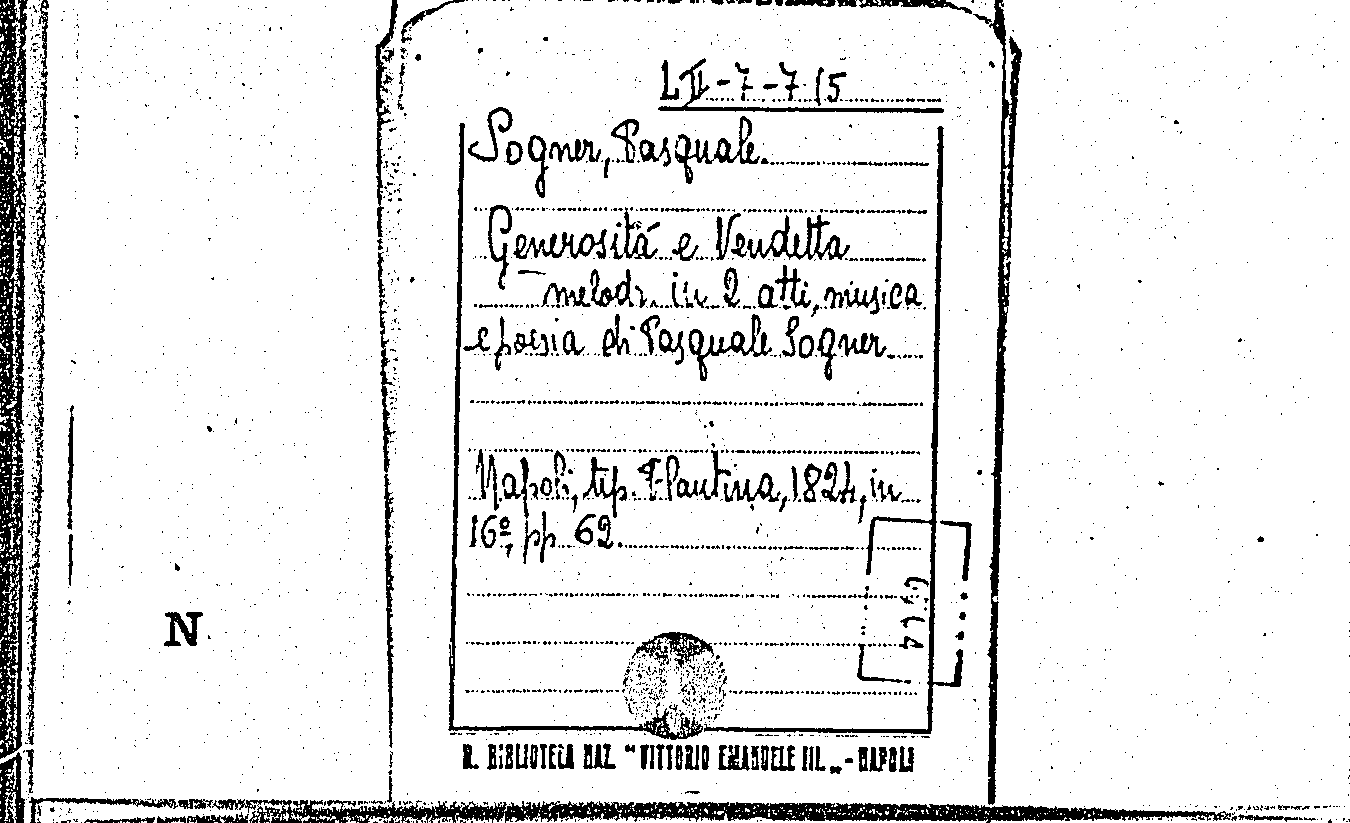 LII-7-7 15
Sogner, Pasquale.
Generosità e Vendetta
melodr. in 2 atti, musica
e poesia di Pasquale Sogner.
Napoli, tip. Flautina, 1824, in
16º, pp. 62.
N
R. BIBLIOTECA NAZ. "VITTORIO EMANUELE III„ - NAPOLI